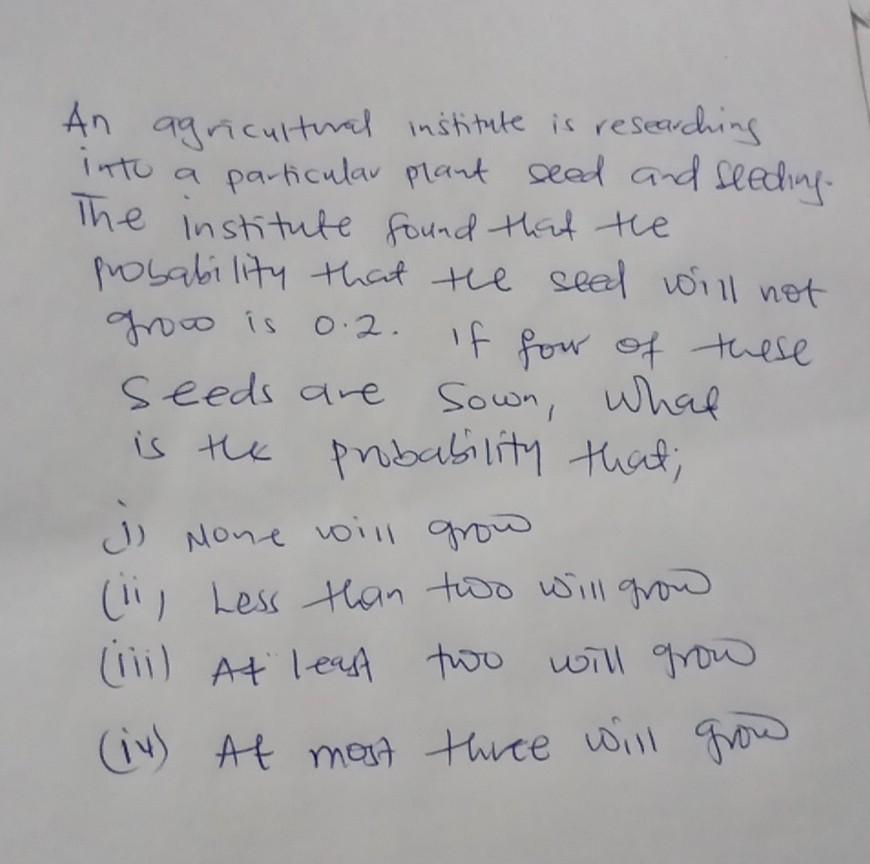 An agricultural institute is researching
into a particular plant seed and seeding.
The institute found that the
probability that the seed will not
grow is 0.2. if four of these
seeds are sown, what
is the probability that;
i) None will grow
(ii) Less than two will grow
(iii) At least two will grow
(iv) At most three will grow